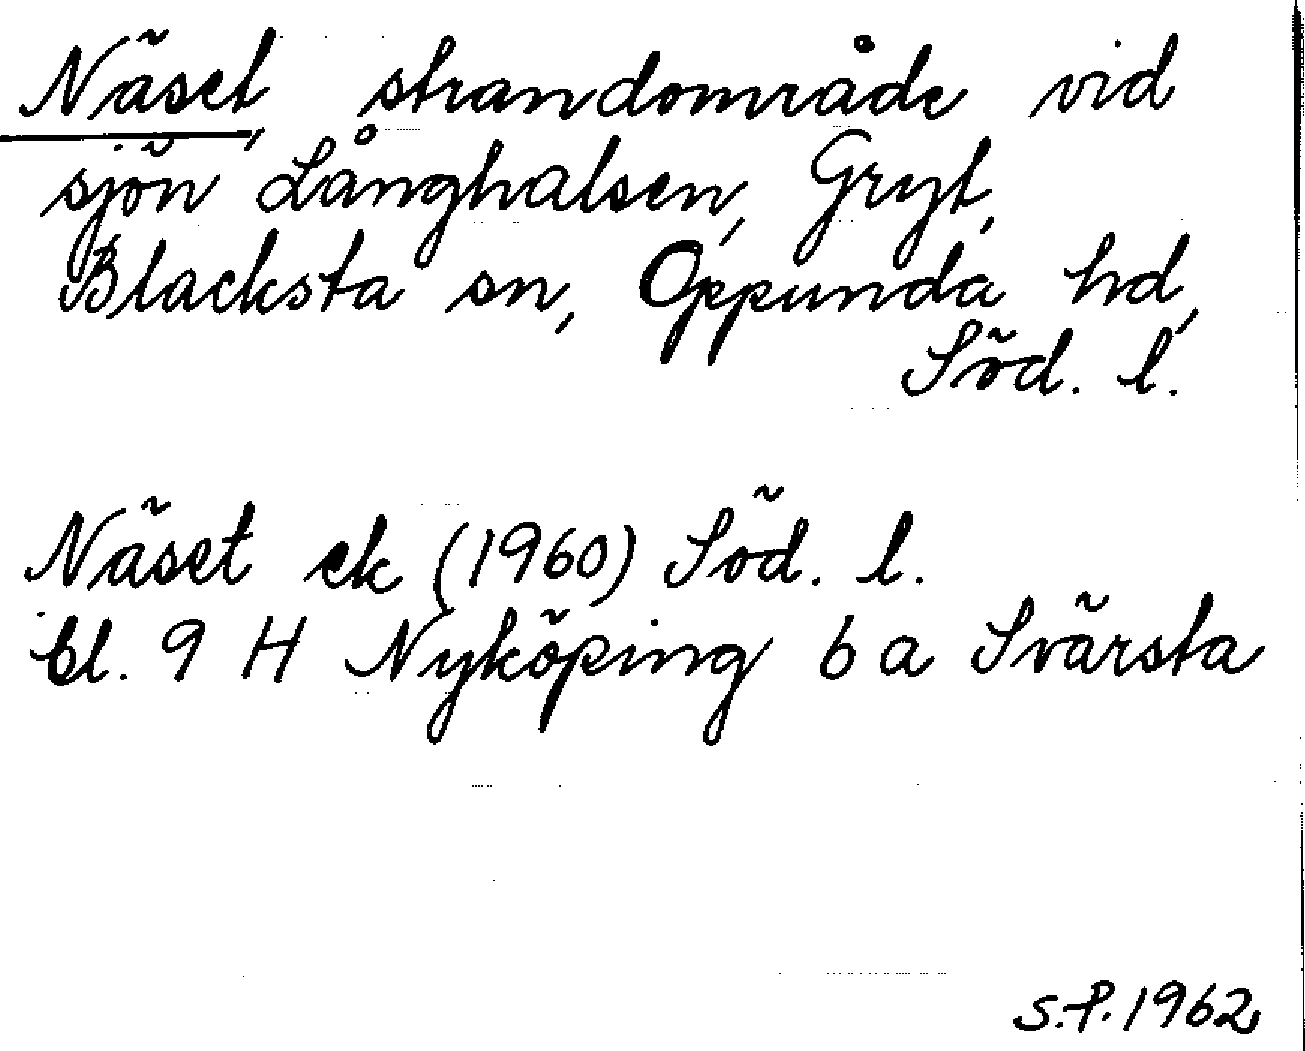 Näset, strandområde vid
sjön Långhalsen, Gryt,
Blacksta sn, Oppunda hd,
Söd. l.
Näset ek (1960) Söd. l.
bl. 9 H Nyköping 6 a Svärsta
S.P. 1962